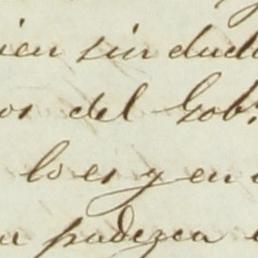 ien sin duda
os del Gob.
lo es y en
padezca